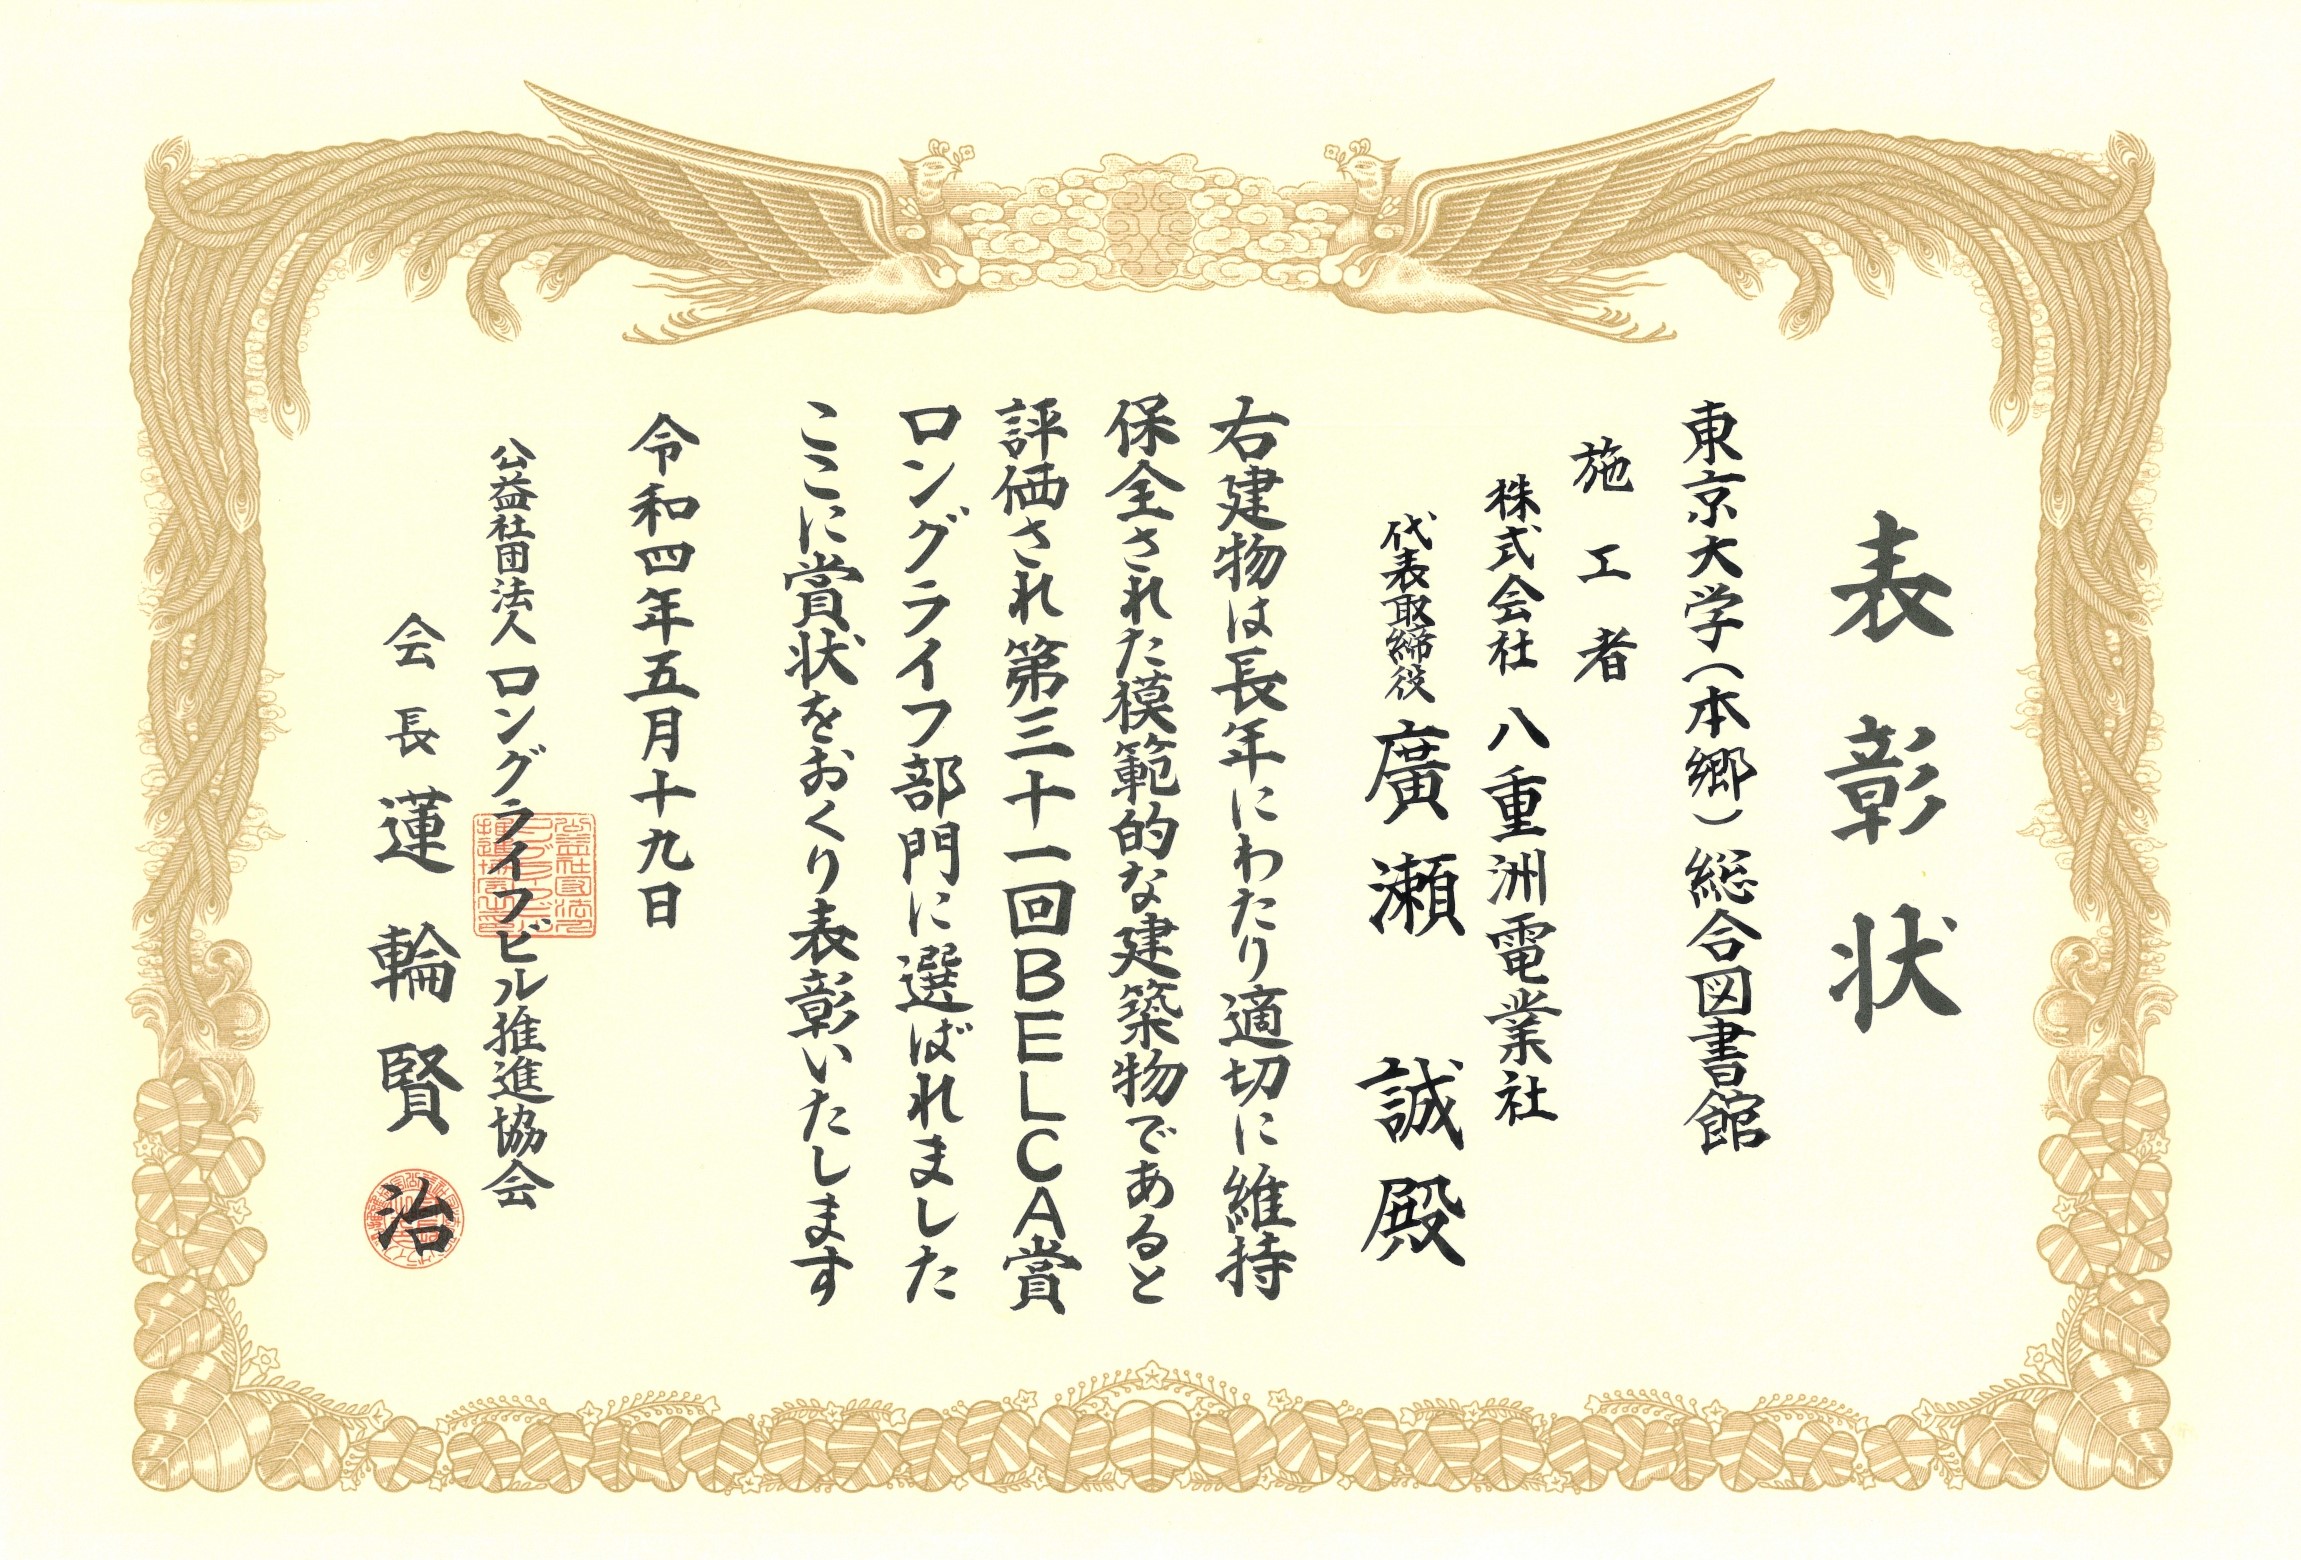 表彰状
東京大学(本郷)総合図書館
施工者
株式会社 八重洲電業社
代表取締役 廣瀬 誠殿
右建物は長年にわたり適切に維持
保全された模範的な建築物であると
評価され第三十一回BELCA賞
ロングライフ部門に選ばれました
ここに賞状をおくり表彰いたします
令和四年五月十九日
公益社団法人 ロングライフビル推進協会
会長 蓮輪賢治